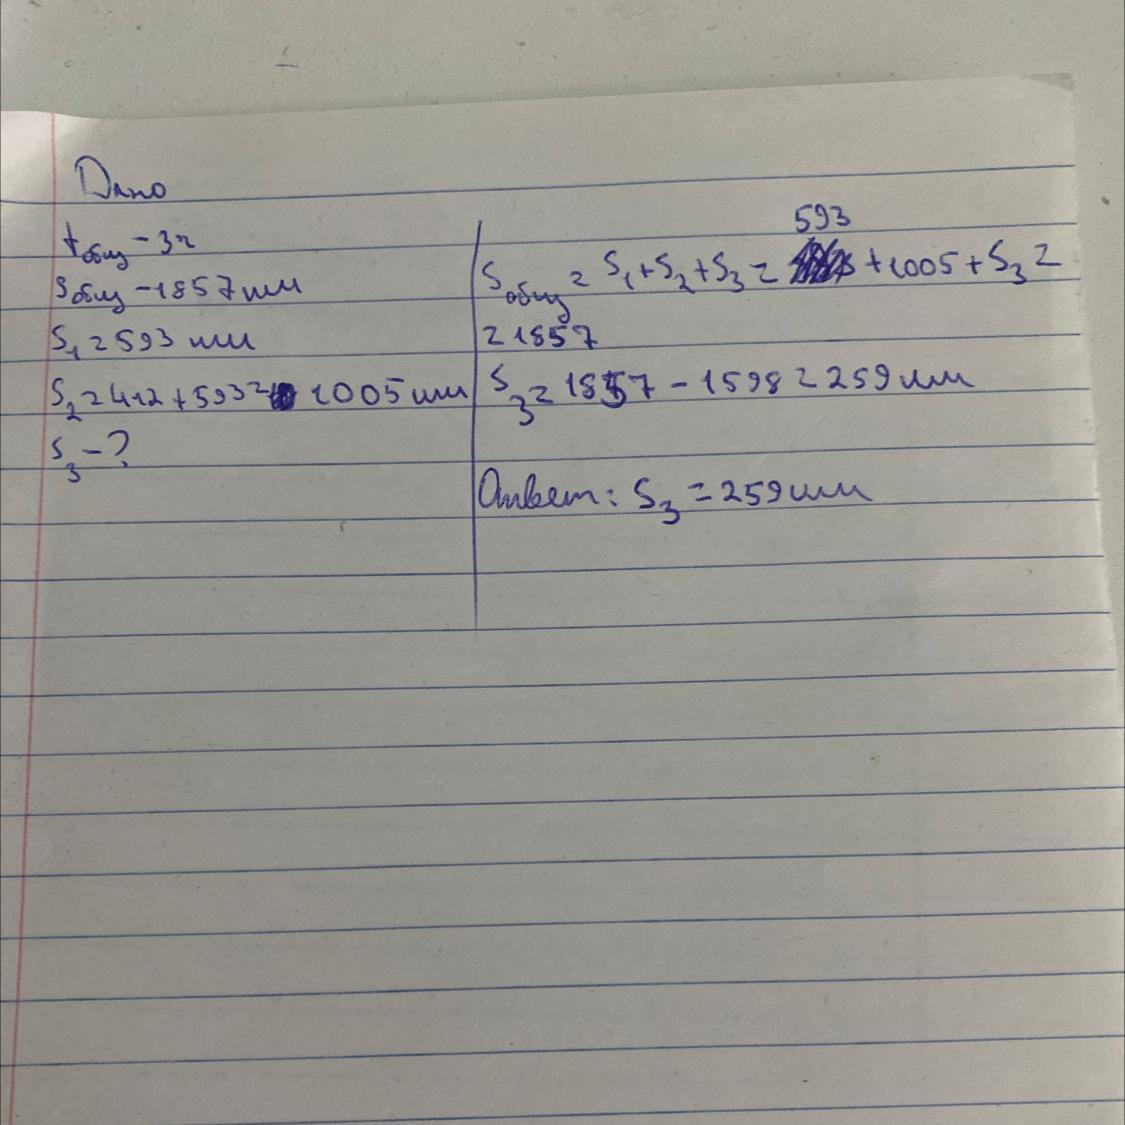 Дано
tобщ - 3ч
Sобщ - 1857 мм
S1 = 593 мм
S2 = 412 + 593 = 1005 мм
S3 - ?
593
Sобщ = S1 + S2 + S3 = + 1005 + S3 =
= 1857
S3 = 1857 - 1598 = 259 мм
Ответ: S3 = 259 мм